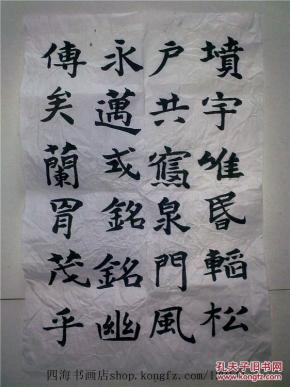 墳宇唯昬韜松
户共窵泉門風
永邁式銘銘幽
傳矣蘭胄茂乎
四海书画店shop.kongfz.com/
孔夫子旧书网